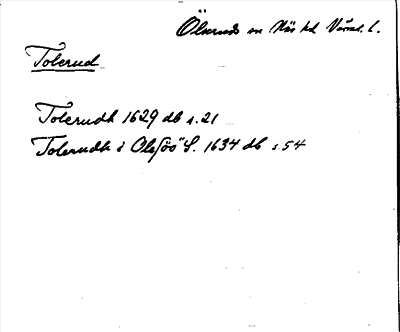 Ölseruds sn Näs hd Värml. l.
Tolerud
Tolerudh 1629 db s. 21
Tolerudh i Olsföö S. 1634 db s. 54